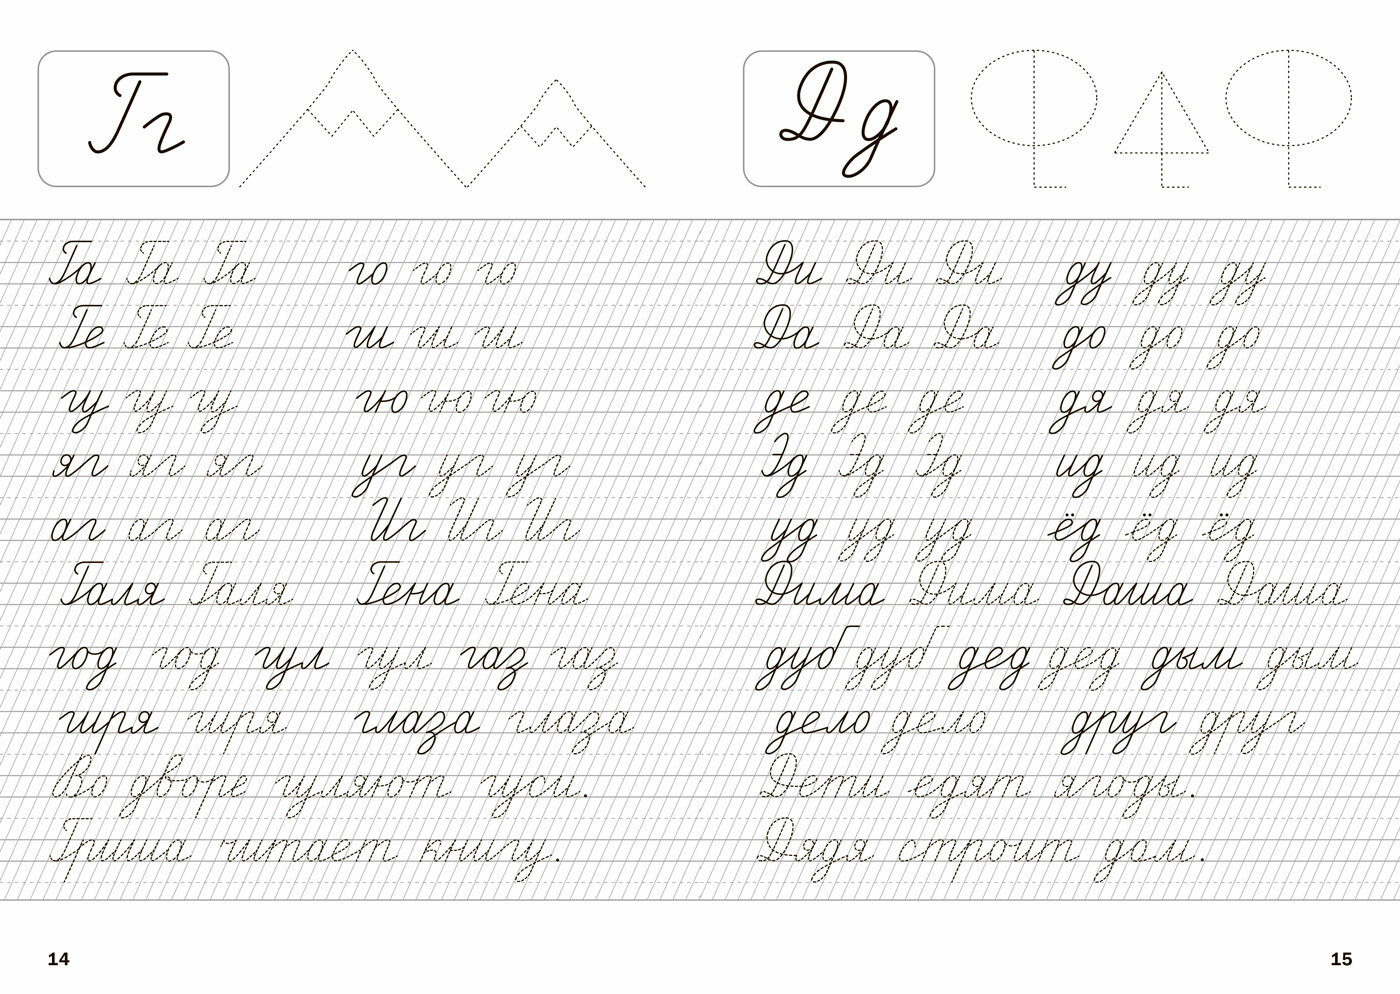 Гг
Га Га Га го го го
Ге Ге Ге ги ги ги
гу гу гу гю гю гю
яг яг яг уг уг уг
аг аг аг Иг Иг Иг
Галя Галя Гена Гена
год год гул гул газ газ
гиря гиря глаза глаза
Во дворе гуляют гуси.
Гриша читает книгу.
14
Дд
Ди Ди Ди ду ду ду
Да Да Да до до до
де де де дя дя дя
Эд Эд Эд ид ид ид
уд уд уд ёд ёд ёд
Дима Дима Даша Даша
дуб дуб дед дед дым дым
дело дело друг друг
Дети едят ягоды.
Дядя строит дом.
15